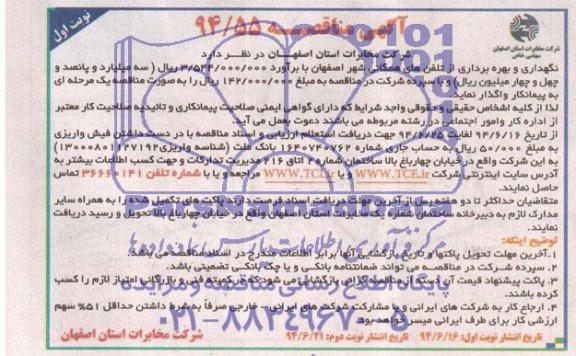 نوبت اول
آگهی مناقصه ۹۴/۵۵
شرکت مخابرات استان اصفهان
سهامی خاص
شرکت مخابرات استان اصفهان در نظر دارد
نگهداری و بهره برداری از تلفن های همگانی شهر اصفهان با برآورد ۳/۵۴۴/۰۰۰/۰۰۰ ریال ( سه میلیارد و پانصد و
چهل و چهار میلیون ریال) و با سپرده شرکت در مناقصه به مبلغ ۱۴۲/۰۰۰/۰۰۰ ریال را به صورت مناقصه یک مرحله ای
به پیمانکار واگذار نماید.
لذا از کلیه اشخاص حقیقی و حقوقی واجد شرایط که دارای گواهی ایمنی صلاحیت پیمانکاری و تائیدیه صلاحیت کار معتبر
از اداره کار وامور اجتماعی در رشته مربوطه می باشند دعوت بعمل می آید.
از تاریخ ۹۴/۶/۱۶ لغایت ۹۴/۶/۲۵ جهت دریافت استعلام ارزیابی و اسناد مناقصه با در دست داشتن فیش واریزی
به مبلغ ۵۰/۰۰۰ ریال به حساب جاری شماره بانک ملت (شناسه واریز
به این شرکت واقع در خیابان چهارباغ بالا ساختمان شماره ۲ اتاق ۲۱۶ مدیریت تدارکات و جهت کسب اطلاعات بیشتر به
آدرس سایت اینترنتی شرکت WWW.TCE.ir و یا WWW.TCI.ir مراجعه و یا با شماره تلفن ۳۶۶۶۰۱۴۱ تماس
حاصل نمایند.
متقاضیان حداکثر تا دو هفته پس از آخرین مهلت دریافت اسناد فرصت دارند پاکت های تکمیل شده را به همراه سایر
مدارک لازم به دبیرخانه ساختمان شماره یک مخابرات استان اصفهان واقع در خیابان چهارباغ بالا تحویل و رسید دریافت
نمایند.
توضیح اینکه:
۱. آخرین مهلت تحویل پاکتها و تاریخ بازگشایی آنها برابر اطلاعات مندرج در اسناد مناقصه می باشد.
۲. سپرده شرکت در مناقصه می تواند ضمانتنامه بانکی و یا چک بانکی تضمینی باشد.
۳. پاکت پیشنهاد قیمت آن دسته از مناقصه گران بازگشایی می شود که در کمیته فنی و بازرگانی امتیاز لازم را کسب
کرده باشند.
۴. ارجاع کار به شرکت های ایرانی و یا مشارکت شرکت های ایرانی - خارجی صرفاً به شرط داشتن حداقل ۵۱٪ سهم
ارزشی کار برای طرف ایرانی میسر خواهد بود.
تاریخ انتشار نوبت اول: ۹۴/۶/۱۶ تاریخ انتشار نوبت دوم: ۹۴/۶/۲۱
شرکت مخابرات استان اصفهان
مرکز فرآوری اطلاعات پارس نماد داده ها
پایگاه اطلاع رسانی مناقصه و مزایده
۰۲۱-۸۸۳۴۹۶۷۰-۵